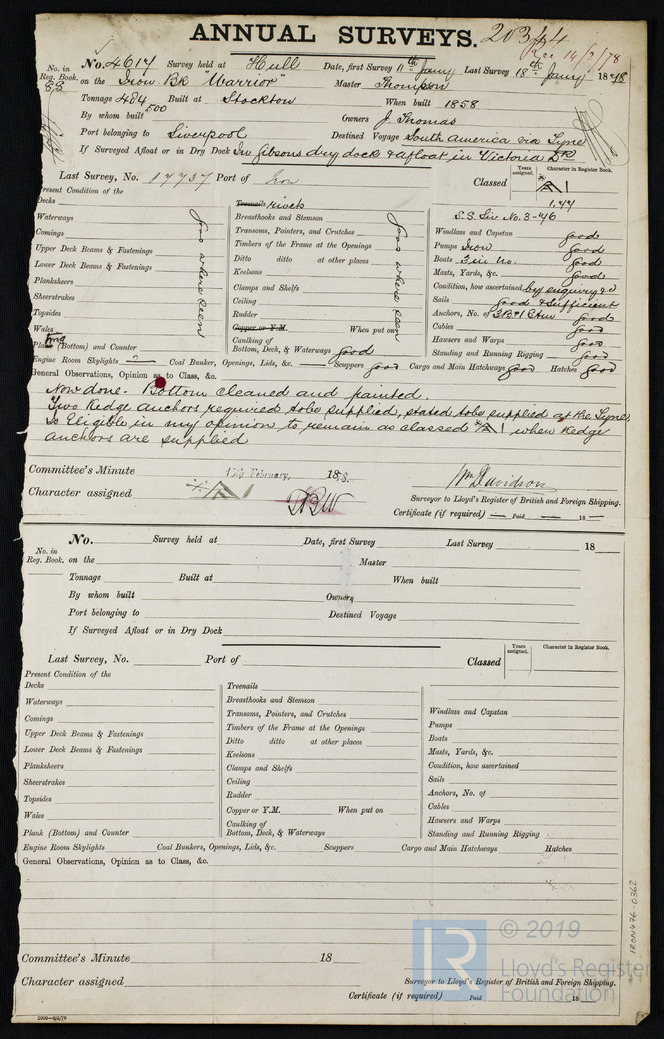 ANNUAL SURVEYS. 20344
Rec 14/2/78
No. in Reg. Book. No. 4617 Survey held at Hull Date, first Survey 11th Jany Last Survey 18th Jany 1878
83 on the Iron Bk "Warrior" Master Thompson
Tonnage 484 Built at Stockton When built 1858
500
By whom built Owners J. Thomas
Port belonging to Liverpool Destined Voyage South America via Tyne
If Surveyed Afloat or in Dry Dock In Gibsons dry dock & afloat in Victoria Dk
Last Survey, No. 17737 Port of Classed Years assigned. Character in Register Book.
A1
1,77
S.S. Liv No. 3-76
Present Condition of the
Decks
Waterways
Comings
Upper Deck Beams & Fastenings
Lower Deck Beams & Fastenings
Planksheers
Sheerstrakes
Topsides
Wales
Plank (Bottom) and Counter
good where seen
Treenails rivets
Breasthooks and Stemson
Transoms, Pointers, and Crutches
Timbers of the Frame at the Openings
Ditto ditto at other places
Keelsons
Clamps and Shelfs
Ceiling
Rudder
Copper or Y.M. When put on
Caulking of Bottom, Deck, & Waterways good
good where seen
Windlass and Capstan good
Pumps Iron good
Boats good
Masts, Yards, &c. good
Condition, how ascertained by enquiry &c
Sails good & sufficient
Anchors, No. of 3B & 1 good
Cables good
Hawsers and Warps good
Standing and Running Rigging good
Engine Room Skylights Coal Bunker, Openings, Lids, &c. Scuppers good Cargo and Main Hatchways good Hatches good
General Observations, Opinion as to Class, &c.
Now done. Bottom cleaned and painted.
Two Kedge anchors required to be supplied, stated to be supplied at the Tyne,
Is Eligible in my opinion to remain as classed A1 when Kedge
anchors are supplied
Committee's Minute 15th February, 1878.
Character assigned A1
Wm Davidson
Surveyor to Lloyd's Register of British and Foreign Shipping.
Certificate (if required) Paid 18
No. Survey held at Date, first Survey Last Survey 18
No. in Reg. Book. on the Master
Tonnage Built at When built
By whom built Owners
Port belonging to Destined Voyage
If Surveyed Afloat or in Dry Dock
Last Survey, No. Port of Classed Years assigned. Character in Register Book.
Present Condition of the
Decks
Waterways
Comings
Upper Deck Beams & Fastenings
Lower Deck Beams & Fastenings
Planksheers
Sheerstrakes
Topsides
Wales
Plank (Bottom) and Counter
Treenails
Breasthooks and Stemson
Transoms, Pointers, and Crutches
Timbers of the Frame at the Openings
Ditto ditto at other places
Keelsons
Clamps and Shelfs
Ceiling
Rudder
Copper or Y.M. When put on
Caulking of Bottom, Deck, & Waterways
Windlass and Capstan
Pumps
Boats
Masts, Yards, &c.
Condition, how ascertained
Sails
Anchors, No. of
Cables
Hawsers and Warps
Standing and Running Rigging
Engine Room Skylights Coal Bunkers, Openings, Lids, &c. Scuppers Cargo and Main Hatchways Hatches
General Observations, Opinion as to Class, &c.
Committee's Minute 18
Character assigned
Surveyor to Lloyd's Register of British and Foreign Shipping.
Certificate (if required) Paid 18
IRON476-0362
LR © 2019
Lloyd's Register
Foundation